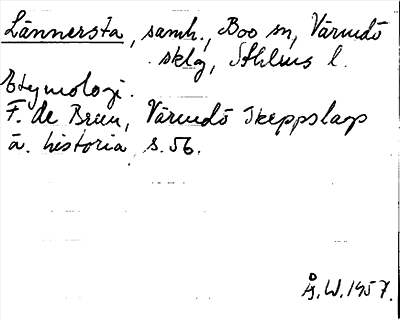 Lännersta, samh., Boo sn, Värmdö
sklg, Sthlms l.
Etymologi.
F. de Brun, Värmdö Skeppslags
ä. historia, s. 56.
Å. W. 1957.